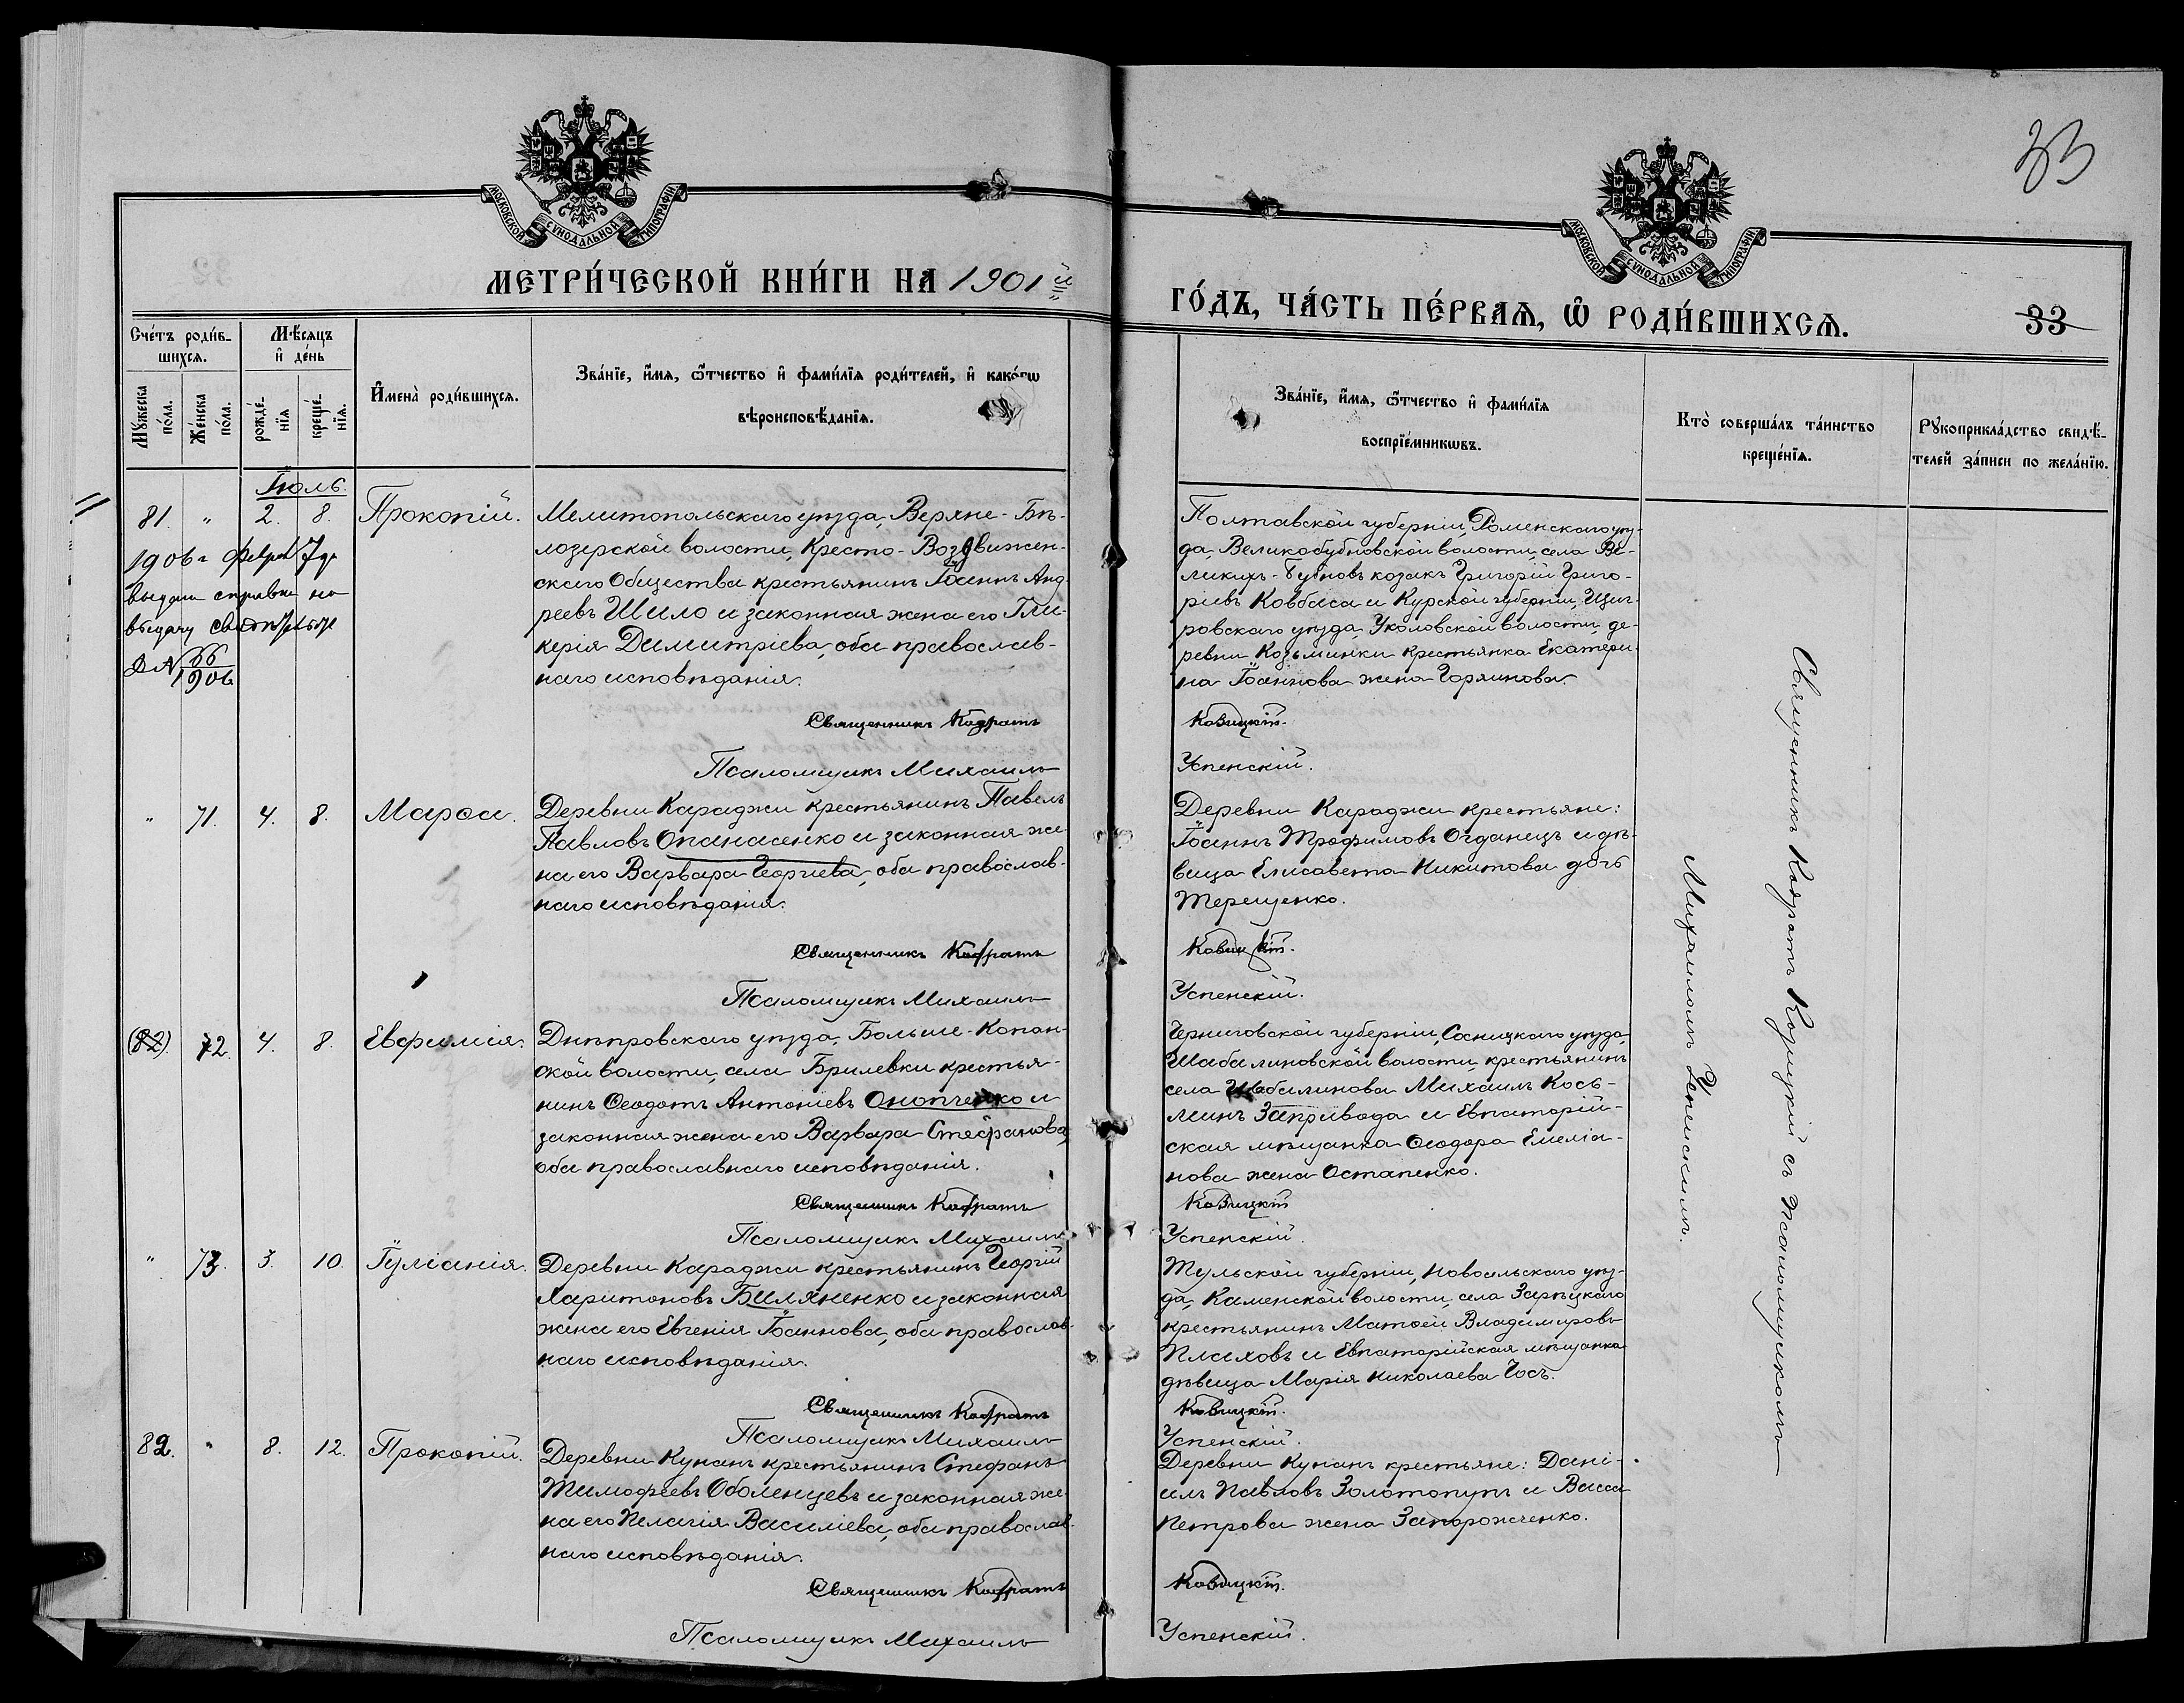 33
МОСКОВСКОЙ СѴНОДАЛЬНОЙ ТИПОГРАФІИ
МОСКОВСКОЙ СѴНОДАЛЬНОЙ ТИПОГРАФІИ
МЕТРИ́ЧЕСКОЙ КНИ́ГИ НА 1901й
ГО́ДЪ, ЧА́СТЬ ПЕ́РВАѦ, Ѡ҆ РОДИ́ВШИХСѦ.
33
Сче́тъ роди́в-
шихсѧ.
Мѣ́сяцъ
и҆ де́нь
Мꙋ́жеска
по́ла.
Же́нска
по́ла.
рожде́-
нїѧ
креще́-
нїѧ.
И҆мена̀ роди́вшихсѧ.
Зва́нїе, и҆́мѧ, ѻ҆́тчество и҆ фами́лїѧ роди́телей, и҆ како́гѡ
вѣроисповѣ́данїѧ.
Зва́нїе, и҆́мѧ, ѻ҆́тчество и҆ фами́лїѧ
воспрїе́мникѡвъ.
Кто̀ соверша́лъ та́инство
креще́нїѧ.
Рꙋкоприкла́дство свидѣ́-
телей за́писи по жела́нїю.
Іюль.
81. " 2. 8. Прокопій.
1906 г Февра 7 д
выдана справка на
выдачу свидѣт
Д № 66
1906
Мелитопольскаго уѣзда, Верхне-Бѣ-
лозерской волости, Кресто-Воздвижен-
скаго Общества крестьянинъ Іоаннъ Анд-
реевъ Шило и законная жена его Гли-
керія Димитріева, оба православ-
наго исповѣданія.
Священникъ Кодратъ
Псаломщикъ Михаилъ
Полтавской губерніи, Роменскаго уѣз-
да, Великобубновской волости, села Ве-
ликихъ-Бубновъ козакъ Григорій Григо-
ріевъ Ковбаса и Курской губерніи, Щиг-
ровскаго уѣзда, Уколовской волости, де-
ревни Козьминки крестьянка Екатери-
на Іоаннова жена Горяинова.
Козицкій.
Успенскій.
" 71. 4. 8. Марѳа.
Деревни Караджи крестьянинъ Павелъ
Павловъ Опанасенко и законная же-
на его Варвара Георгіева, оба православ-
наго исповѣданія.
Священникъ Кодратъ
Псаломщикъ Михаилъ
Деревни Караджи крестьяне:
Іоаннъ Трофимовъ Огданецъ и дѣ-
вица Елисавета Никитова дочь
Терещенко.
Козицкій.
Успенскій.
(82). 72. 4. 8. Евфимія.
Днѣпровскаго уѣзда, Больше-Копан-
ской волости, села Брилевки крестья-
нинъ Ѳеодотъ Антоніевъ Онопченко и
законная жена его Варвара Стефанова,
оба православнаго исповѣданія.
Священникъ Кодратъ
Псаломщикъ Михаилъ
Черниговской губерніи, Сосницкаго уѣзда,
Шабалиновской волости, крестьянинъ
села Шабалинова Михаилъ Кось-
минъ Запривода и Евпаторій-
ская мѣщанка Ѳеодора Емеліа-
нова жена Остапенко.
Козицкій
Успенскій.
" 73. 3. 10. Іуліанія.
Деревни Караджи крестьянинъ Георгій
Харитоновъ Биляненко и законная
жена его Евгенія Іоаннова, оба православ-
наго исповѣданія.
Священникъ Кодратъ
Псаломщикъ Михаилъ
Тульской губерніи, Новосильскаго уѣз-
да, Каменской волости, села Зарѣцкаго
крестьянинъ Матѳей Владиміровъ
Плаховъ и Евпаторійская мѣщанка
дѣвица Марія Николаева Чосъ.
Козицкій.
Успенскій.
82. " 8. 12. Прокопій.
Деревни Кунанъ крестьянинъ Стефанъ
Тимофеевъ Оболенцевъ и законная же-
на его Пелагія Василіева, оба православ-
наго исповѣданія.
Священникъ Кодратъ
Псаломщикъ Михаилъ
Деревни Кунанъ крестьяне: Дані-
илъ Павловъ Золотопупъ и Васса
Петрова жена Запорожченко.
Козицкій.
Успенскій.
Священникъ Кодратъ Козицкій съ псаломщикомъ
Михаиломъ Успенскимъ.